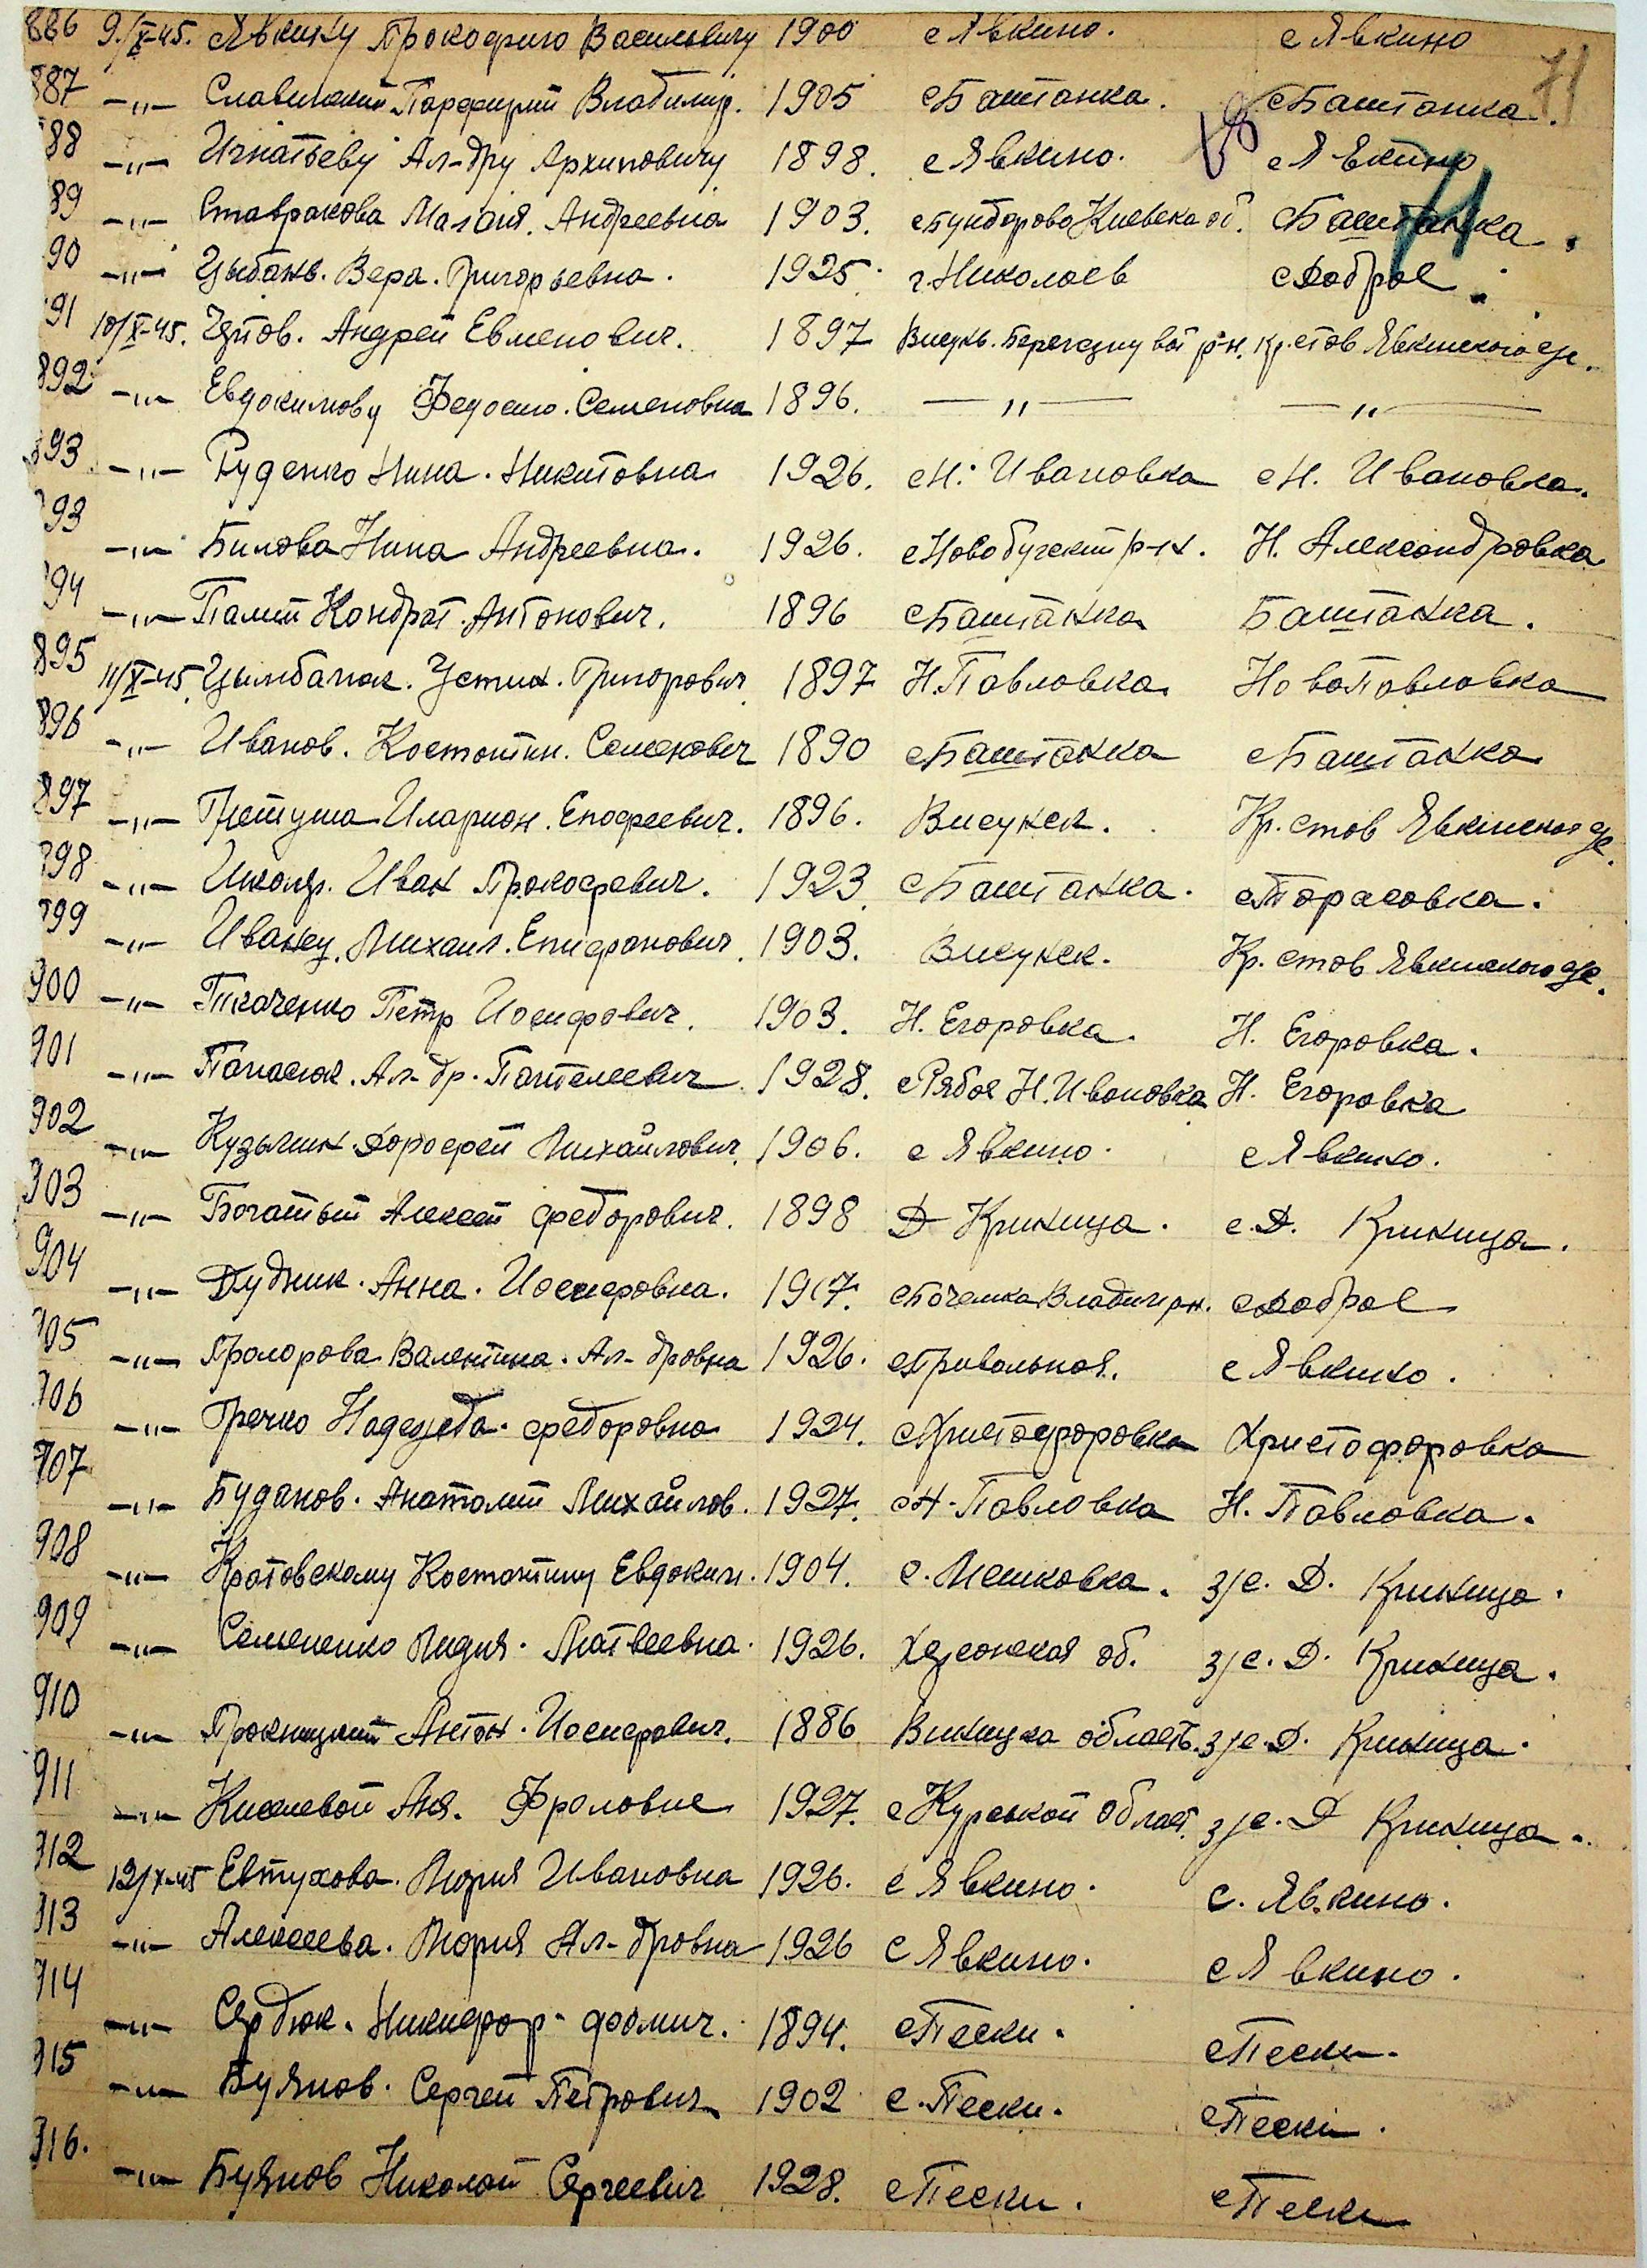 71
886 9/X-45. Явкину Прокофию Васильевичу 1900 с Явкино. с Явкино
887 -"- Парфирий Владимир. 1905 с Баштанка. с Баштанка.
88 -"- Игнатьеву Ал-дру Архиповичу 1898. с Явкино. с Явкино
89 -"- Ставракова Андреевна 1903. Киевска об. с Баштанка.
90 -"- Цыбань. Вера. Григорьевна. 1925. г. Николаев с Доброе.
91 10/X-45. Андрей Евменович. 1897 р-н. Кр. стов Явкинского с/с.
892 -"- Евдокимову Федосию. Семеновна 1896. -"- -"-
893 -"- Руденко Нина. Никитовна 1926. с Н. Ивановка с Н. Ивановка.
93 -"- Билова Нина Андреевна. 1926. с Новобугский р-н. Н. Александровка
94 -"- Палий Кондрат. Антонович. 1896 с Баштанка Баштанка.
895 11/X-45. Цымбалюк. Устин. Григорович. 1897 Н. Павловка Новопавловка
896 -"- Иванов. Костонтин. Семенович 1890 с Баштанка с Баштанка
897 -"- Иларион. 1896. Висунск. Кр. стов Явкинского с/с.
898 -"- Школяр. Иван Прокофевич. 1923. с Баштанка. с Тарасовка.
899 -"- Иванец. Михаил. Епифанович. 1903. Висунск. Кр. стов Явкинского с/с.
900 -"- Ткаченко Петр Иосифович. 1903. Н. Егоровка. Н. Егоровка.
901 -"- Панасюк. Ал-др. Пантелеевич. 1928. с Рябое Н. Ивановка Н. Егоровка
902 -"- Кузьмин Дорофей Михайлович. 1906. с Явкино. с Явкино.
903 -"- Богатый Алексей Федорович. 1898 Д Криница. с. Д. Криница.
904 -"- Дудник. Анна. Иосифовна. 1917. с Доброе
905 -"- Валентина. Ал-дровна 1926. с Привольное. с Явкино.
906 -"- Гречко Надежда. Федоровна 1924. с Христофоровка Христофоровка
907 -"- Буданов. Анатолий Михайлов. 1927. с Н. Павловка Н. Павловка.
908 -"- Кротовскому Костантину Евдоким. 1904. с. Мешковка. з/с. Д. Криница.
909 -"- Семененко Лидия. Матвеевна. 1926. Херсонская об. з/с. Д. Криница.
910 -"- Антон. Иосифович. 1886 Виницка область. з/с. Д. Криница.
911 -"- Киселевой Аня. Фроловне 1927. с Курской област. з/с. Д Криница.
912 12/X-45 Евтухова. Мария Ивановна 1926. с Явкино. с. Явкино.
913 -"- Алексеева. Мария Ал-дровна 1926 с Явкино. с Явкино.
914 -"- Сердюк. Никифор. Фомич. 1894. с Пески. с Пески.
915 -"- Буянов. Сергей Петрович. 1902 с. Пески. с Пески.
916. -"- Буянов Николай Сергеевич 1928. с Пески. с Пески